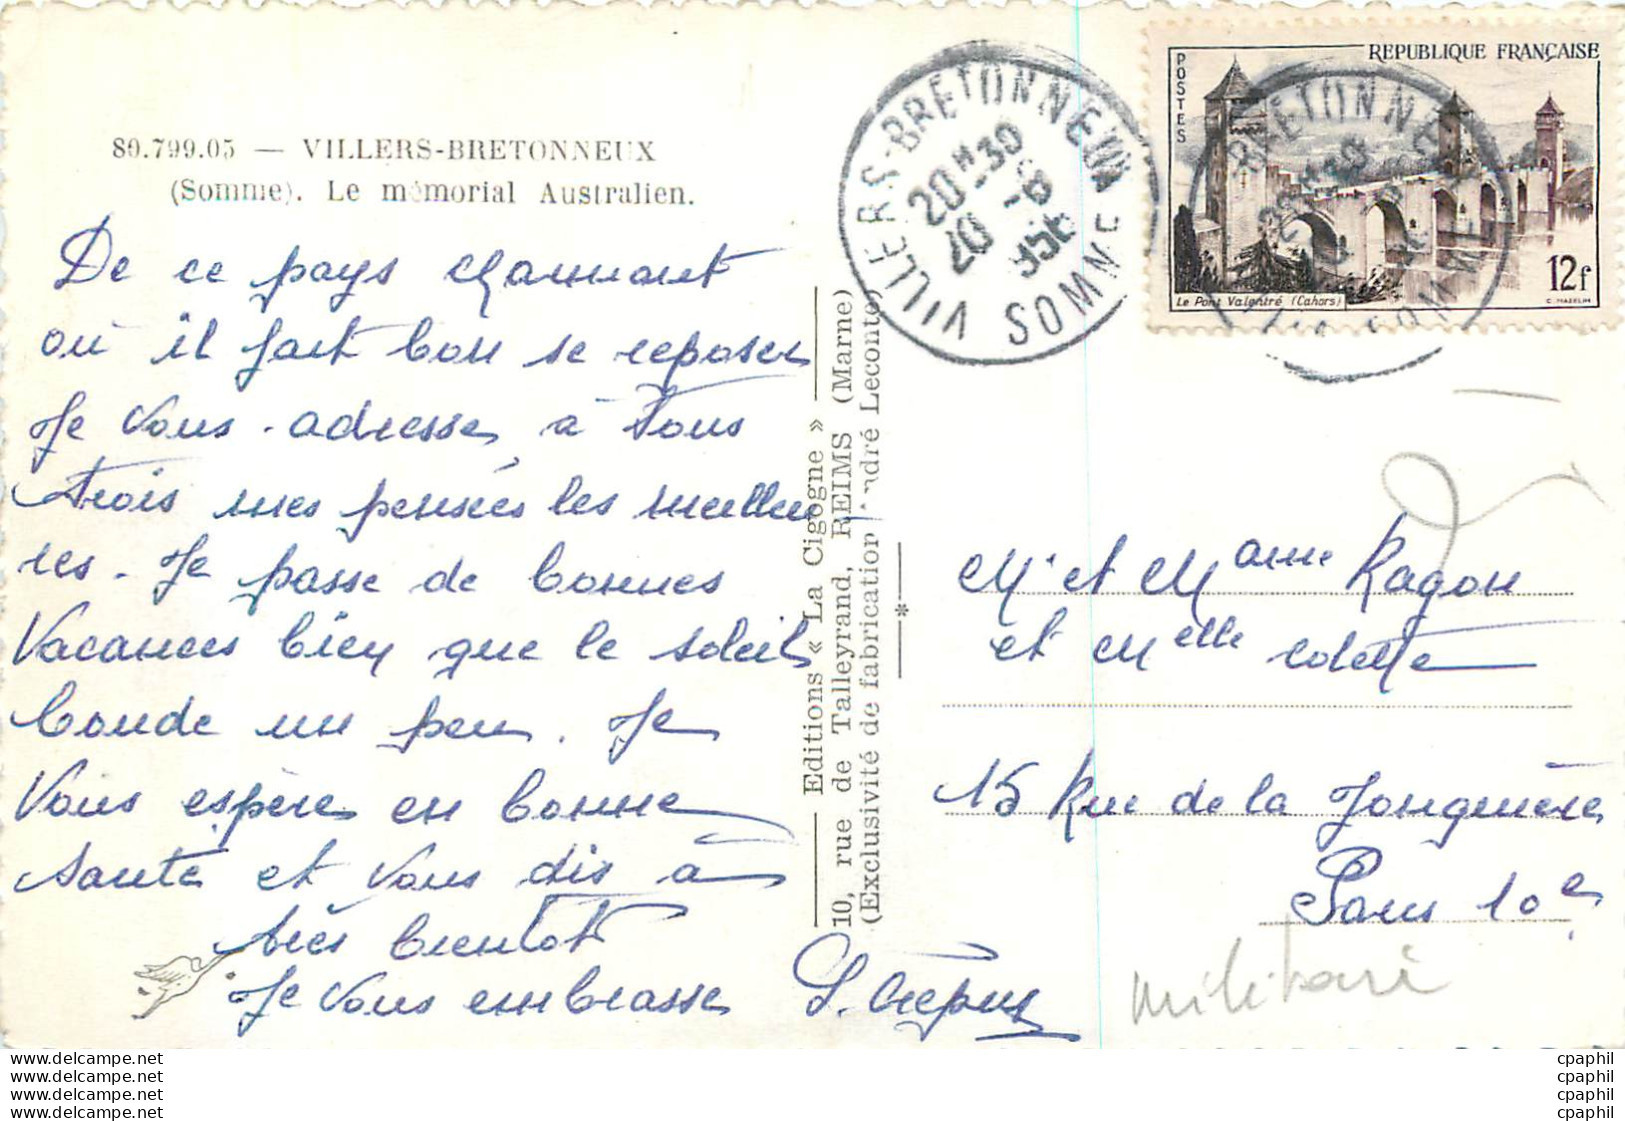 80.799.05 — VILLERS-BRETONNEUX
(Somme). Le mémorial Australien.
De ce pays charmant
où il fait bon se reposer
Je vous adresse, à Tous
Trois mes pensées les meilleu
res. Je passe de bonnes
Vacances bien que le soleil
boude un peu. Je
Vous espère en bonne
Santé et vous dis à
très bientôt
Je vous embrasse
Editions « La Cigogne »
10, rue de Talleyrand, REIMS (Marne)
(Exclusivité de fabrication André Leconte)
*
VILLERS-BRETONNEUX
20H30
SOMME
POSTES
REPUBLIQUE FRANÇAISE
Le Pont Valentré (Cahors)
12f
C. MAZELIN
BRETONNEUX
SOMME
Mr et Mame Ragon
et Melle Colette
15 Rue de la Jonquière
Paris 10e
militaire
www.delcampe.com
www.delcampe.com
www.delcampe.com
www.delcampe.com
cpaphil
cpaphil
cpaphil
cpaphil